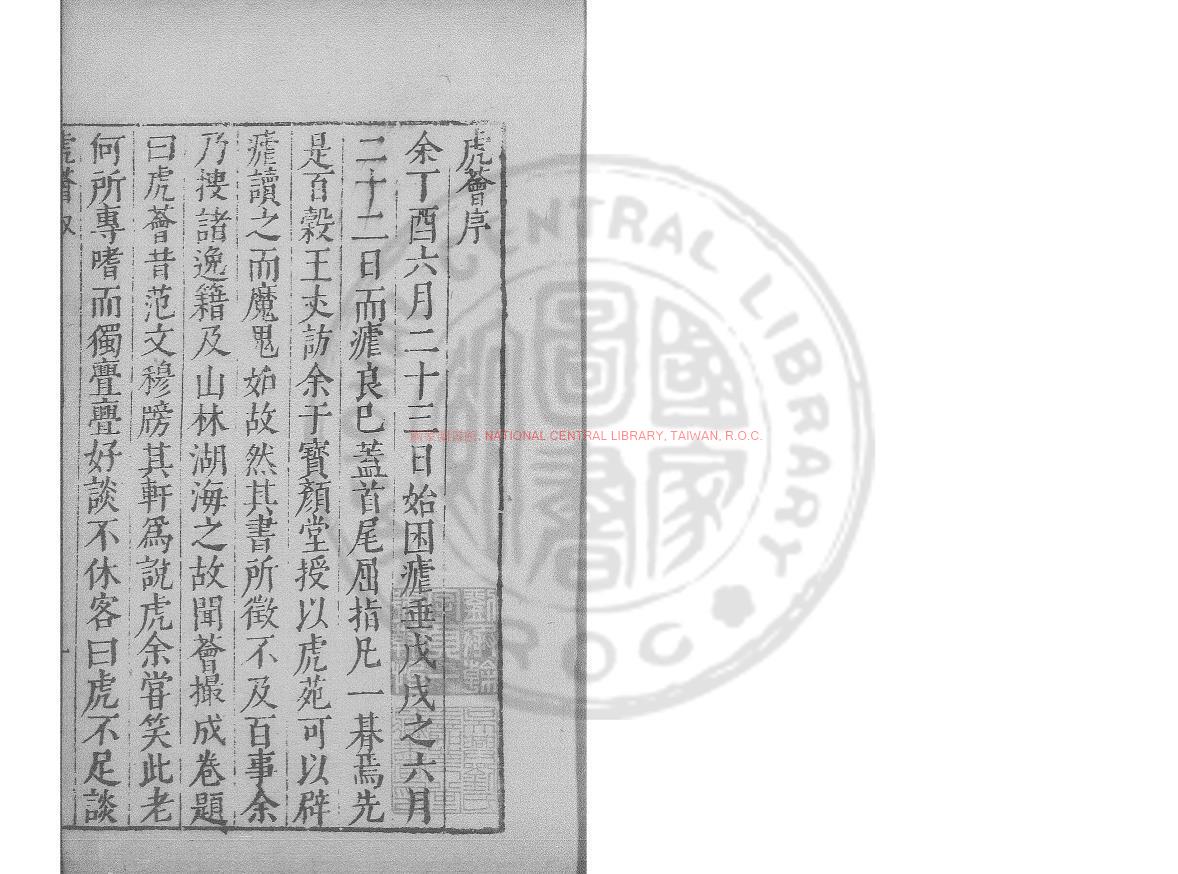 虎薈序
余丁酉六月二十三日始困瘧垂戊戌之六月
二十二日而瘧良已蓋首尾屈指凡一朞焉先
是百穀王丈訪余于寳顏堂授以虎苑可以辟
瘧讀之而魔鬼如故然其書所徵不及百事余
乃搜諸逸籍及山林湖海之故聞薈撮成卷題
曰虎薈昔范文穆牓其軒爲說虎余甞笑此老
何所專嗜而獨亹亹好談不休客曰虎不足談
虎薈叙
NATIONAL CENTRAL LIBRARY, TAIWAN, R.O.C.
CENTRAL LIBRARY
ROC
國家圖書館